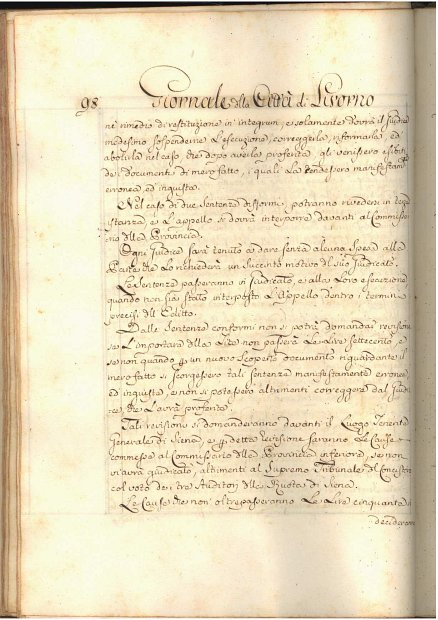 98 Giornale della Città di Livorno
nè rimedio di restituzione in integrum, e solamente dovrà il Giudice
medesimo sospenderne l'esecuzione, correggerla, riformarla, ed
abolirla nel caso, che dopo averla proferita, gli venissero esibiti
de' documenti di mero fatto, i quali la rendessero manifestamte
erronea, ed ingiusta.
Nel caso di due Sentenze difformi, potranno rivedersi in terza
istanza, e l'appello si dovrà interporre davanti al Commissa
rio della Provincia.
Ogni Giudice sarà tenuto a dare senza alcuna Spesa alla
Parte che lo richiederà un Succinto motivo del suo giudicato.
Le Sentenze passeranno in Giudicato, e alla loro esecuzione
quando non sia stato interposto l'Appello dentro i termini
precisi dell'Editto.
Dalle Sentenze conformi non si potrà domandar revisione
se l'importare della Lite non passerà le Lire settecento, e
se non quando per un nuovo scoperto documento riguardante il
mero fatto si scorgessero tali sentenze manifestamente erronee,
ed ingiuste, e non si potessero altrimenti correggere dal Giudi
ce, che l'avrà proferite.
Tali revisioni si domanderanno davanti il Luogo Tenente
Generale di Siena, e per detta revisione saranno le Cause
commesse al Commissario della Provincia inferiore, se non
vi avrà giudicato, altrimenti al Supremo Tribunale del Concistoro
col voto dei tre Auditori della Ruota di Siena.
Le Cause che non oltrepasseranno le Lire cinquanta si
decideranno